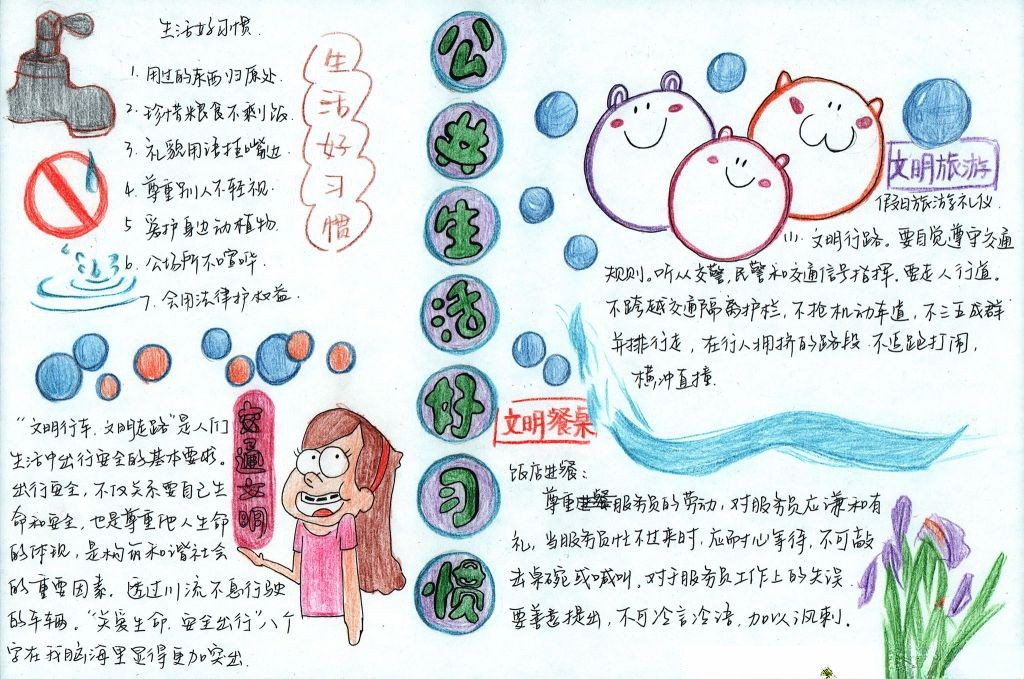 生活好习惯.
1. 用过的东西归原处.
2. 珍惜粮食不剩饭.
3. 礼貌用语挂嘴边
4. 尊重别人不轻视.
5 爱护身边动植物.
6. 公场所不喧哗.
7. 会用法律护权益.
生活好习惯
公共生活好习惯
文明旅游
假日旅游礼仪.
(1). 文明行路。要自觉遵守交通
规则。听从交警,民警和交通信号指挥.要走人行道。
不跨越交通隔离护栏,不抢机动车道,不三五成群
并排行走,在行人拥挤的路段.不追跑打闹,
横冲直撞.
交通文明
"文明行车.文明走路"是人们
生活中出行安全的基本要求。
出行安全,不仅关系要自己生
命和安全,也是尊重他人生命
的体现,是构和谐社会
的重要因素. 透过川流不息行驶
的车辆."关爱生命.安全出行"八个
字在我脑海里显得更加突出.
文明餐桌
饭店进餐:
尊重服务员的劳动,对服务员应谦和有
礼,当服务员忙不过来时,应耐心等待,不可敲
击桌碗或喊叫.对于服务员工作上的失误.
要善意提出,不可冷言冷语,加以讽刺.